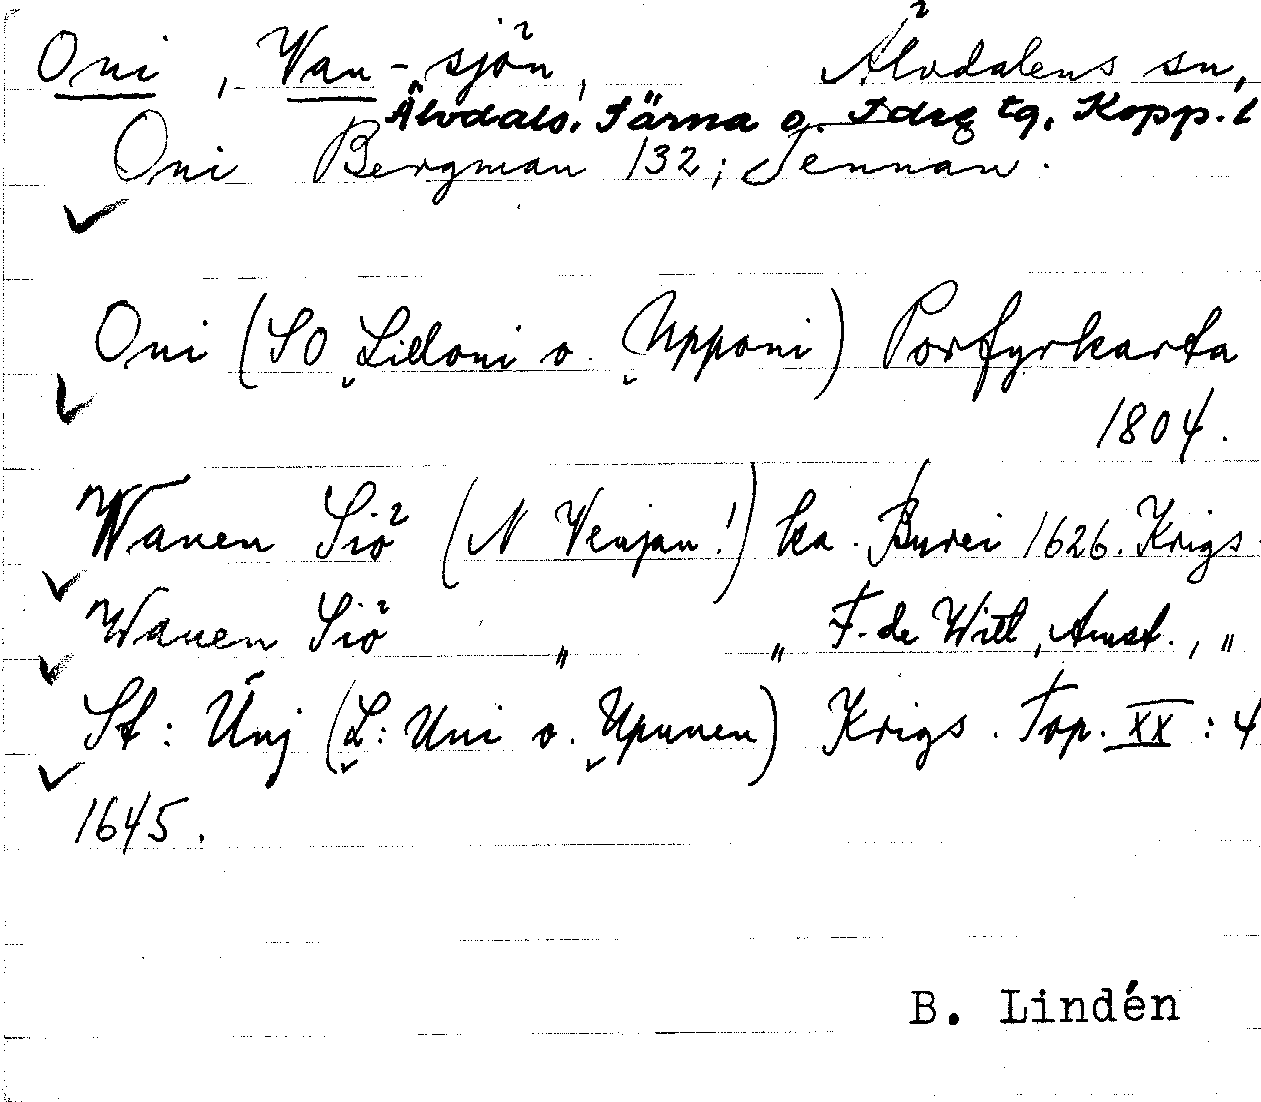 Oni, Van-sjön, Älvdalens sn,
Älvdals, Särna o. Idre tg. Kopp. l
Oni Bergman 132; Tennan.
Oni (SO Lilloni o. Upponi) Porfyrkarta
1804.
Wanen Siö (N Venjan!) ka. Burei 1626. Krigs.
Wanen Siö " " F. de Witt, Amst., "
St: Únj (L: Uni o. Upunen) Krigs. Top. XX : 4
1645.
B. Lindén